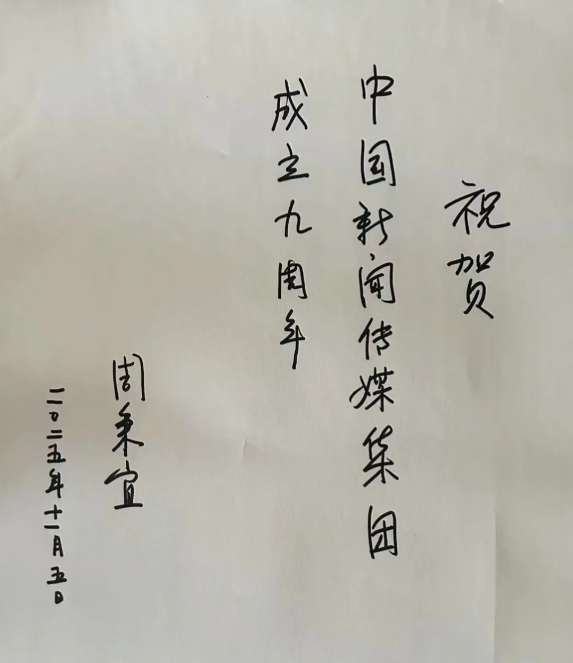 祝贺
中国新闻传媒集团
成立九周年
周秉宜
二〇二五年十一月五日